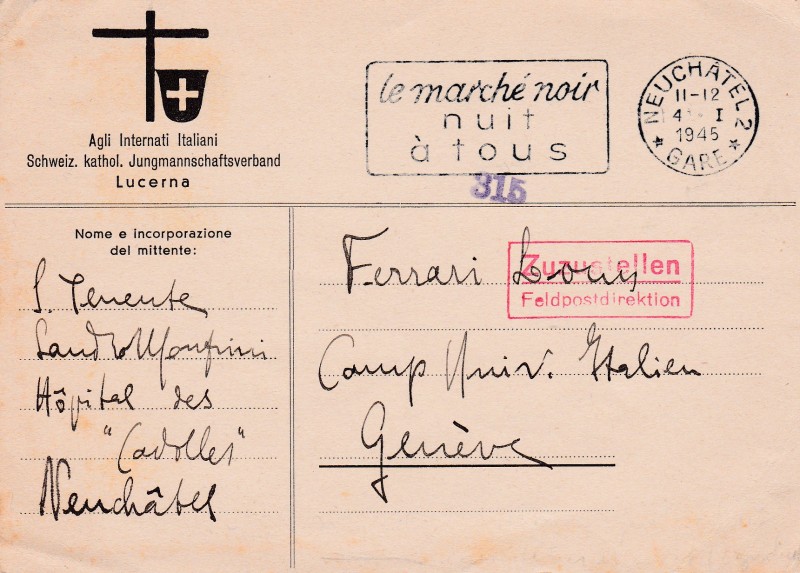 Agli Internati Italiani
Schweiz. kathol. Jungmannschaftsverband
Lucerna
le marché noir
nuit
à tous
NEUCHÂTEL 2
11-12
4 I
1945
* GARE *
315
Nome e incorporazione
del mittente:
S. Tenente
Sandro Monfrini
Hôpital des
"Cadolles"
Neuchâtel
Ferrari Louis
Zuzustellen
Feldpostdirektion
Camp Univ. Italien
Genève